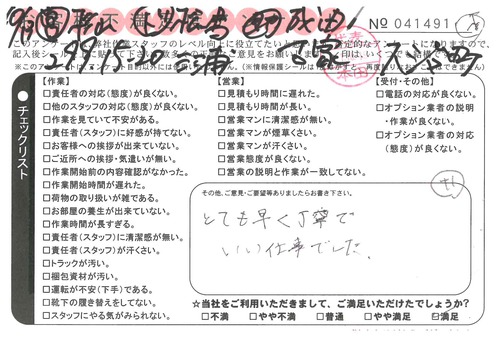 No 041491
チェックリスト
【作業】
□責任者の対応(態度)が良くない。
□他のスタッフの対応(態度)が良くない。
□作業を見ていて不安がある。
□責任者(スタッフ)に好感が持てない。
□お客様への挨拶が出来ていない。
□ご近所への挨拶・気遣いが無い。
□作業開始前の内容確認がなかった。
□作業開始時間が遅れた。
□荷物の取り扱いが雑である。
□お部屋の養生が出来ていない。
□作業時間が長すぎる。
□責任者(スタッフ)に清潔感が無い。
□責任者(スタッフ)が汗くさい。
□トラックが汚い。
□梱包資材が汚い。
□運転が不安(下手)である。
□靴下の履き替えをしてない。
□スタッフにやる気がみられない。
【営業】
□見積もり時間に遅れた。
□見積もり時間が長い。
□営業マンに清潔感が無い。
□営業マンが煙草くさい。
□営業マンが汗くさい。
□営業態度が良くない。
□営業の説明と作業が一致してない。
【受付・その他】
□電話の対応が良くない。
□オプション業者の説明
・作業が良くない。
□オプション業者の対応
(態度)が良くない。
その他、ご意見・ご要望等ありましたらお書き下さい。
とても早く丁寧で
いい仕事でした。
☆当社をご利用いただきまして、ご満足いただけたでしょうか?
□不満 □やや不満 □普通 □やや満足 ☑満足